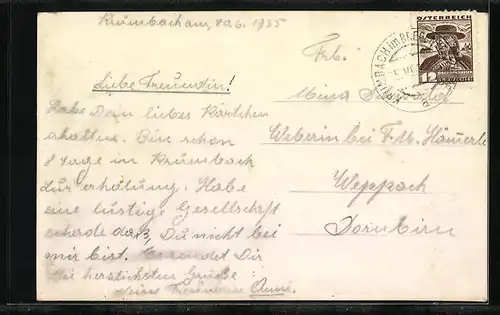 Krumbach am, 8.6.1935
Liebe Freundin!
Habe Dein liebes Kärtchen
erhalten. Bin schon
8 Tage in Krumbach
zur erholung. Habe
eine lustige Gesellschaft
schade daß, Du nicht bei
mir bist. Es sendet Dir
die herzlichsten Grüße
Deine Freundin Anna.
ÖSTERREICH
12
KRUMBACH im BREG
Frl.
Mina
Weberin bei F. M. Hämmerle
Weppach
Dornbirn